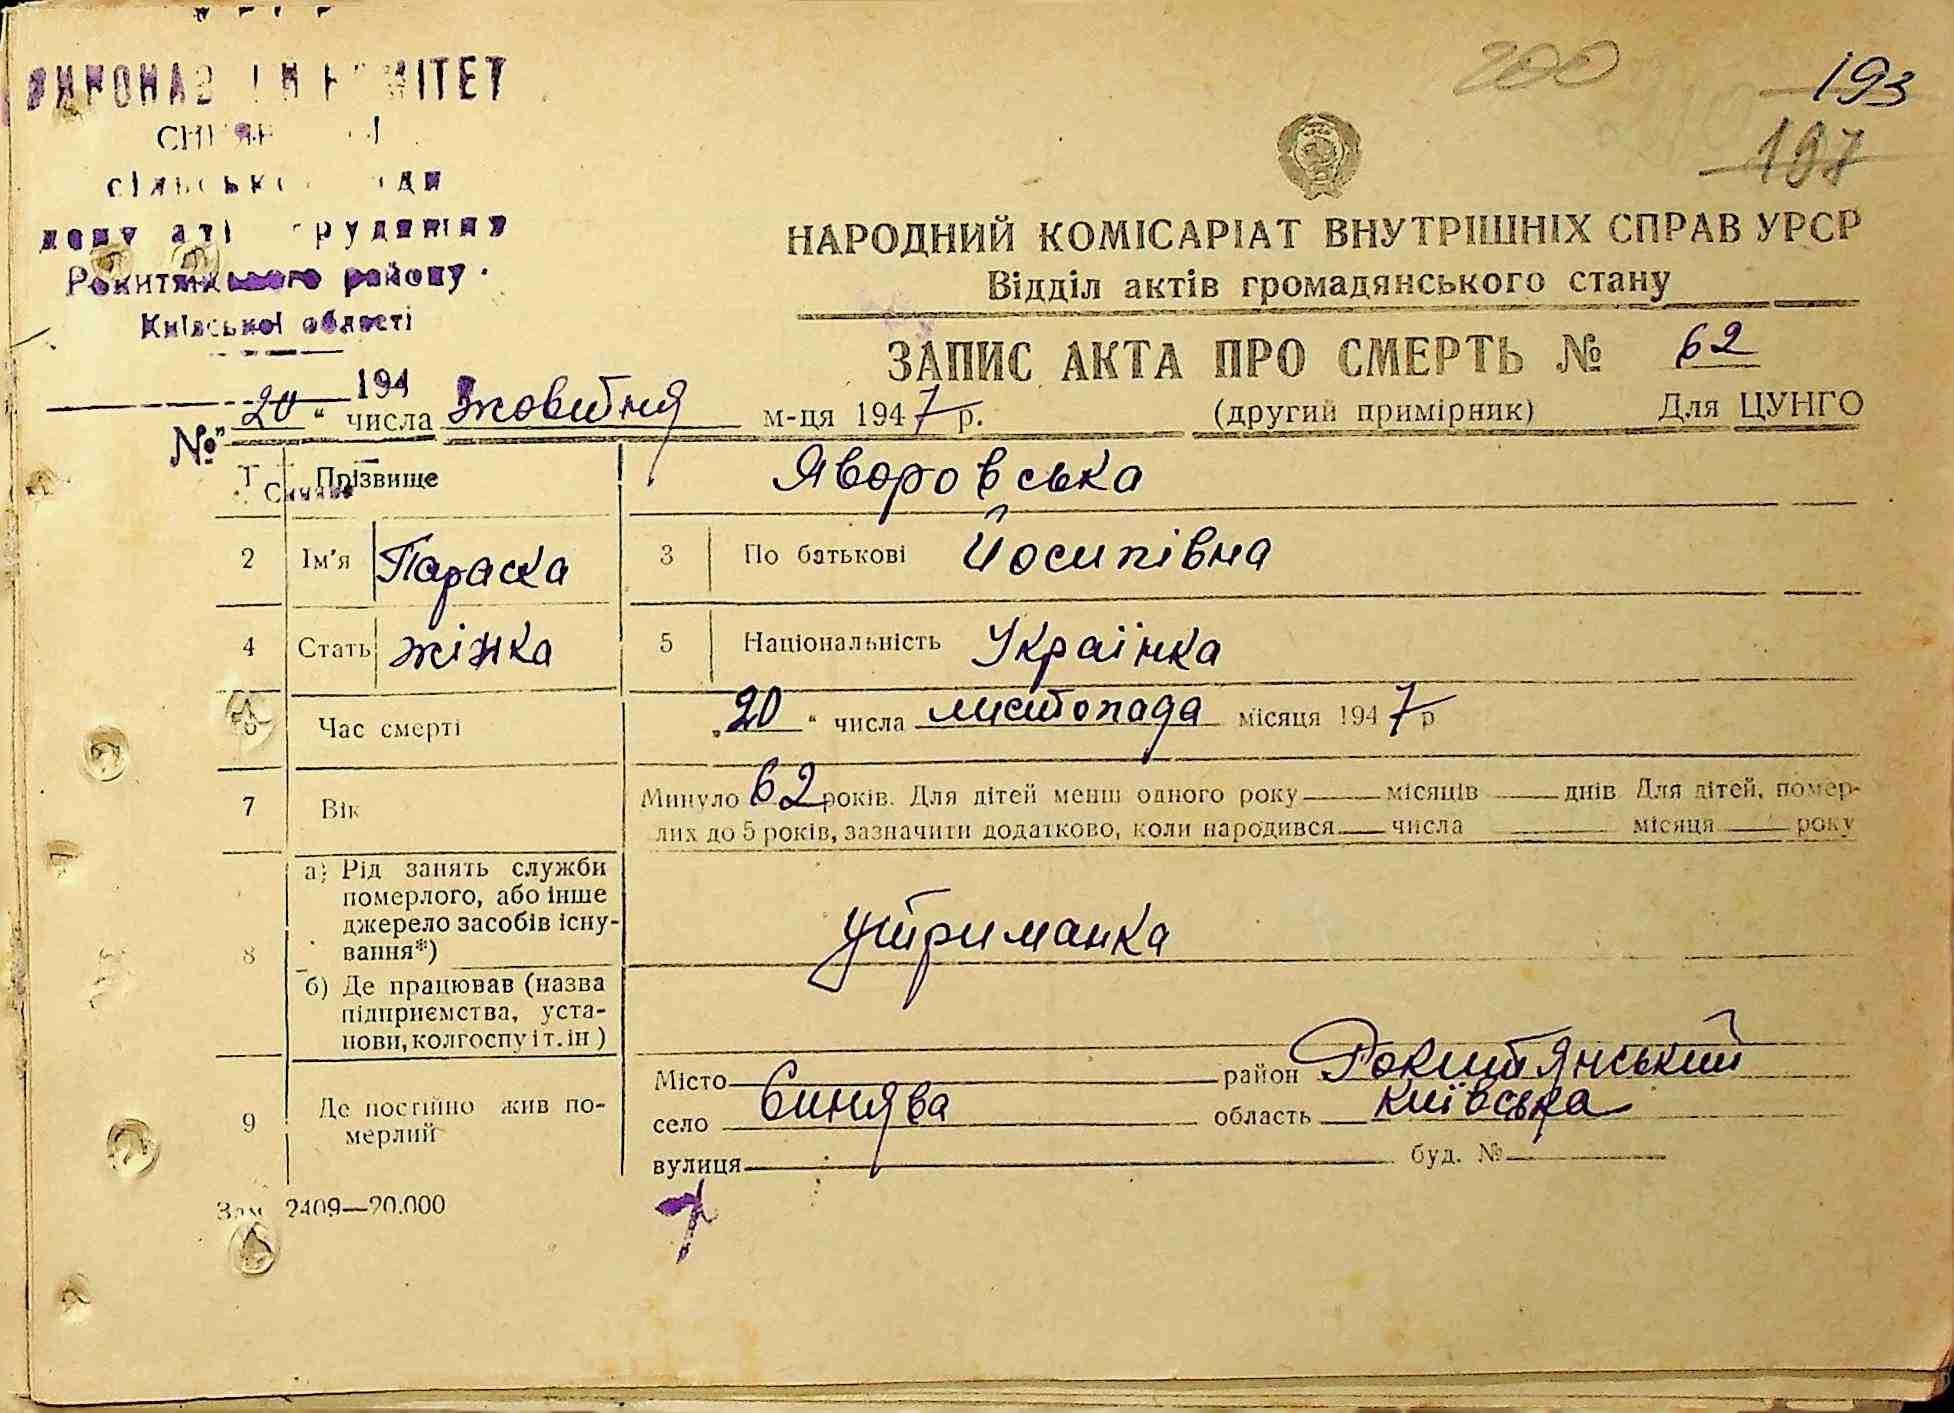 200
193
197
сільської ради
Рокитянського району
Київської області
194
№
НАРОДНИЙ КОМІСАРІАТ ВНУТРІШНІХ СПРАВ УРСР
Відділ актів громадянського стану
ЗАПИС АКТА ПРО СМЕРТЬ № 62
„20“ числа жовтня м-ця 1947 р. (другий примірник) Для ЦУНГО
1 Прізвище Яворовська
2 Ім'я Параска 3 По батькові Йосипівна
4 Стать жінка 5 Національність Українка
6 Час смерті „20“ числа листопада місяця 1947 р
7 Вік Минуло 62 років. Для дітей менш одного року місяців днів Для дітей, помер-
лих до 5 років, зазначити додатково, коли народився числа місяця року
8 а) Рід занять служби
померлого, або інше
джерело засобів існу-
вання*) утриманка
б) Де працював (назва
підприємства, уста-
нови, колгоспу і т. ін )
9 Де постійно жив по-
мерлий
Місто район Рокитянський
село Синява область Київська
вулиця буд. №
Зам 2409—20.000